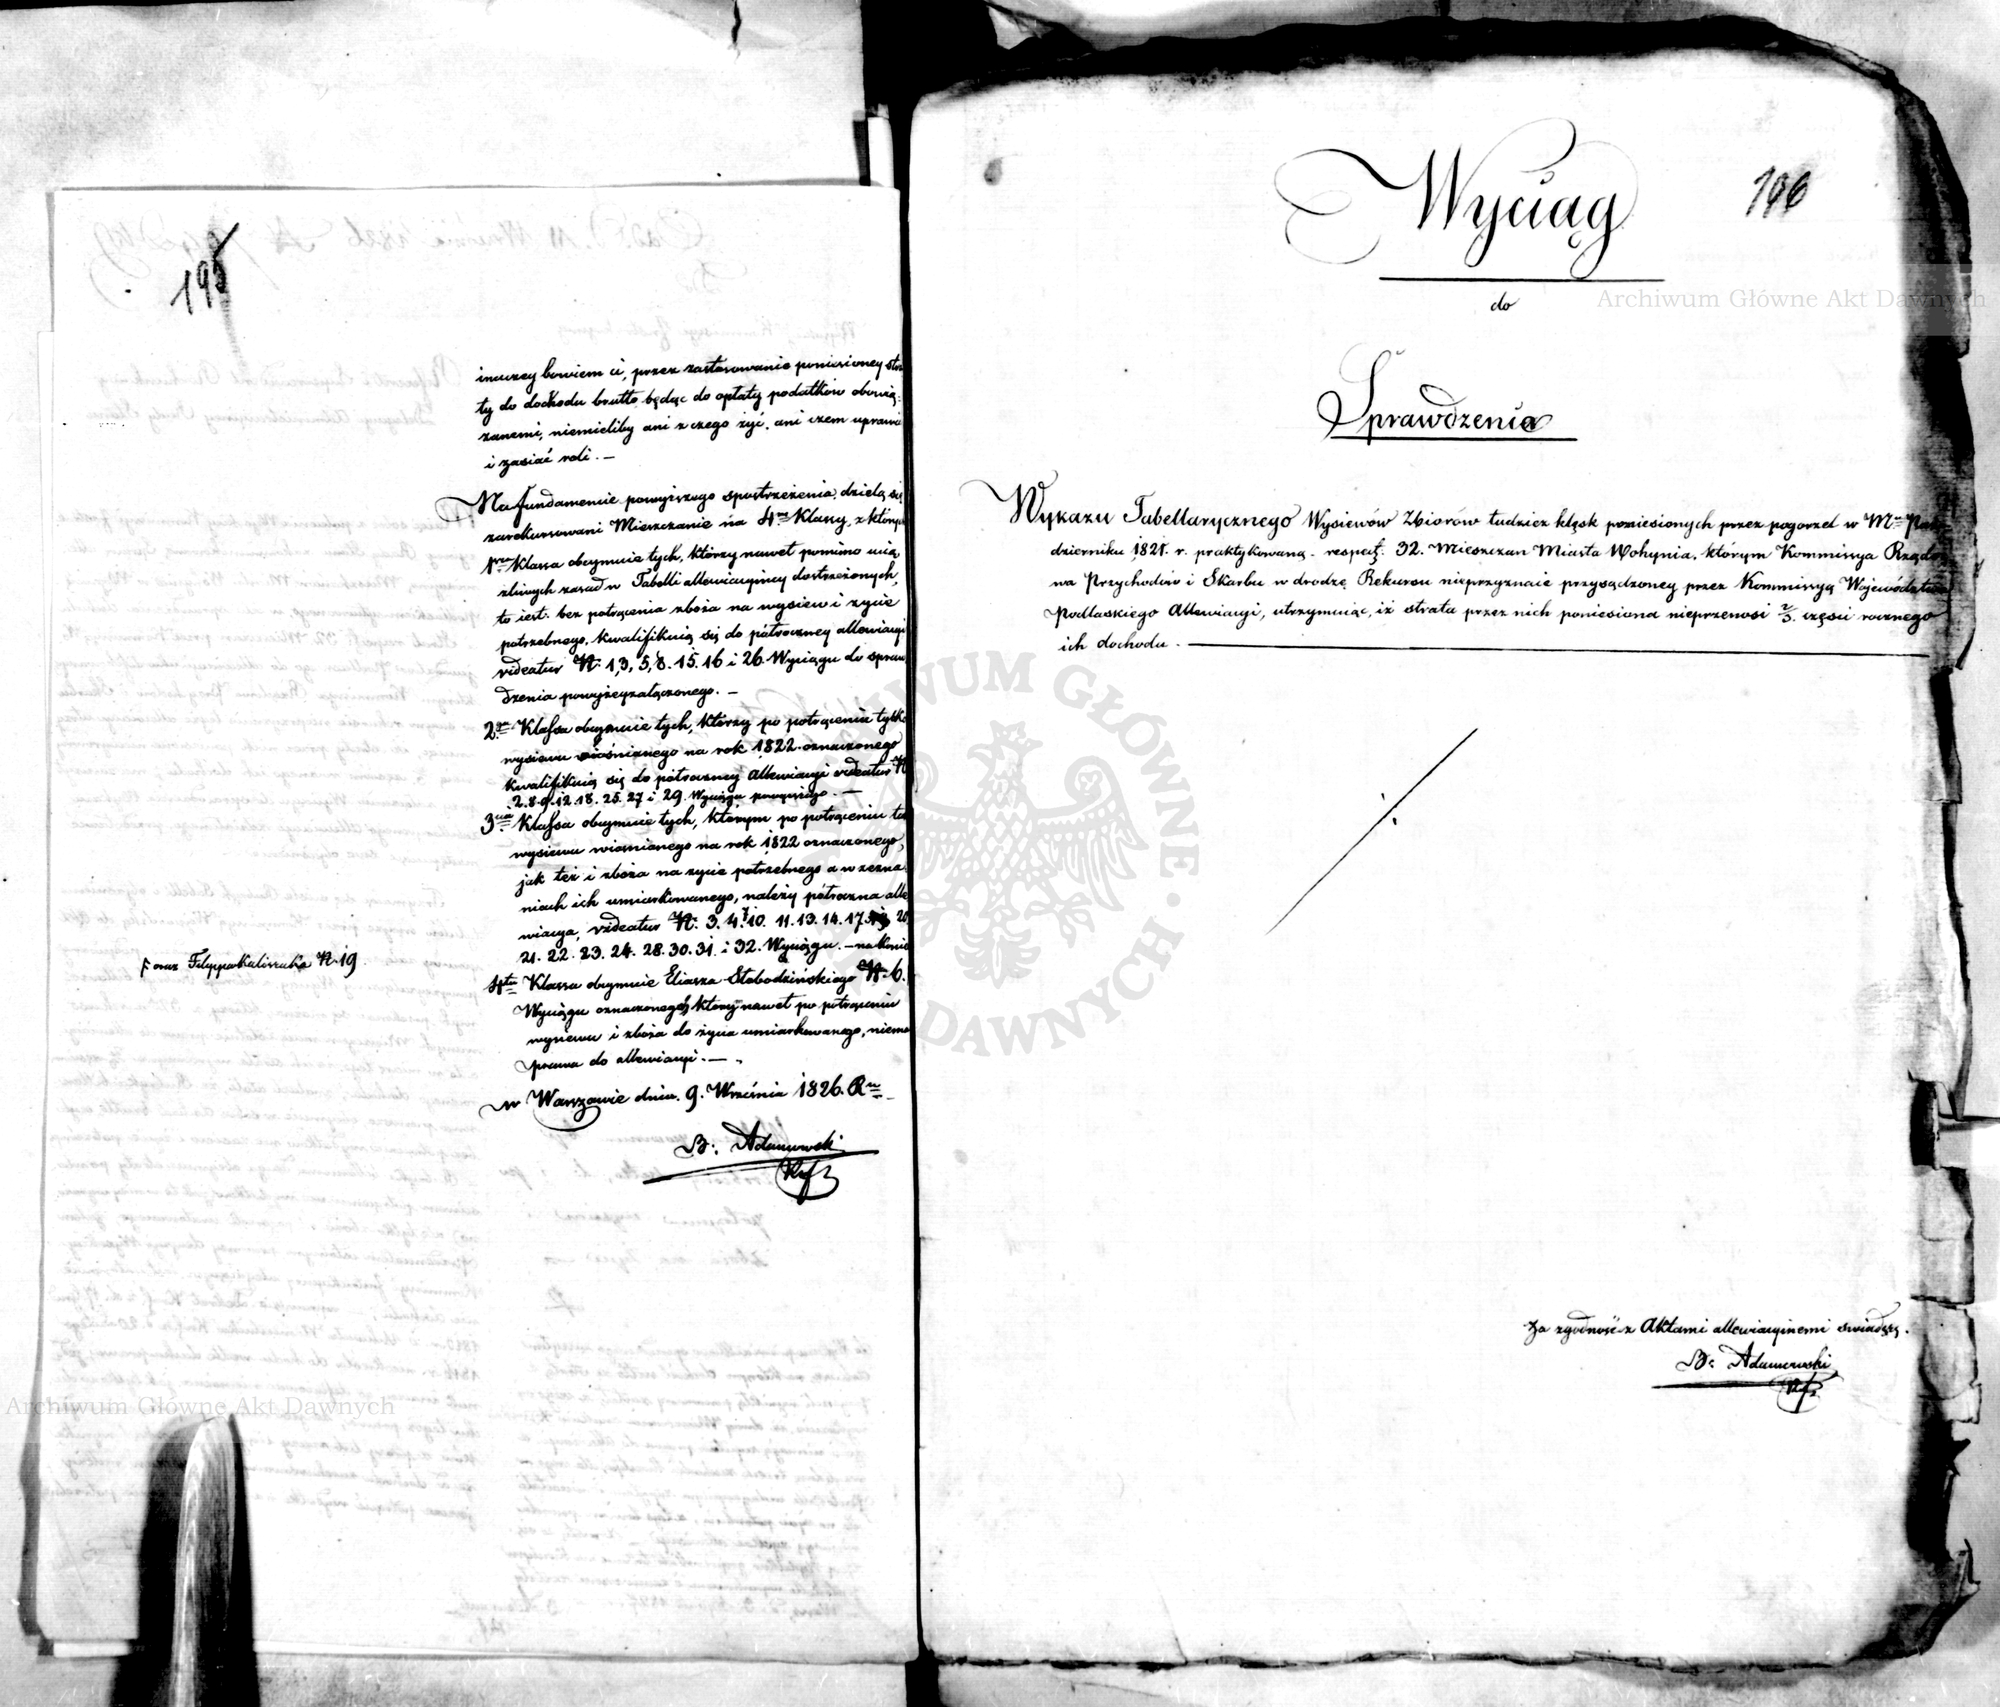 195
inaczey bowiem ci, przez zastosowanie poniesioney stra
ty do dochodu brutto będąc do opłaty podatków obowią-
zanemi, niemieliby ani z czego żyć, ani czem uprawić
i zasiać roli. —
Na fundamencie powyższego spostrzeżenia, dzielą się
zarekursowani Mieszczanie na 4ry Klassy, z których
1wsza Klassa obeymuie tych, którzy nawet pomimo
zasad w Tabelli allewiacyiney dostrzeżonych,
to iest: bez potrącenia zboża na wysiew i życie
potrzebnego, kwalifikuią się do półroczney allewiacyi
videatur N. 1, 3, 5, 8. 15. 16 i 26. Wyciągu do spraw
dzenia powyżey załączonego. —
2ga Klassa obeymuie tych, którzy po potrąceniu tylko
wysiewu wiośnianego na rok 1822 oznaczonego
kwalifikuią się do półroczney allewiacyi videatur N.
2. 8. 9. 12. 18. 25. 27 i 29. Wyciągu powyższego. —
3cia Klassa obeymuie tych, którym po potrąceniu tak
wysiewu wiosnianego na rok 1822 oznaczonego,
jak też i zboża na życie potrzebnego a w zezna
niach ich umiarkowanego, należy półroczna alle
wiacya, videatur N. 3. 4. 7. 10. 11. 13. 14. 17. 20
21. 22. 23. 24. 28. 30. 31. i 32. Wyciągu. — nakoniec
F oraz Filippa Kaliszuka N. 19
4ta Klassa obeymuie Eliasza Słabodzińskiego N. 6.
Wyciągu oznaczonego, który nawet po potrąceniu
wysiewu i zboża do życia umiarkowanego, niema
prawa do allewiacyi. —
w Warszawie dnia 9. Września 1826. R
B: Adamowski
Rf
196
Wyciąg
do
Sprawdzenia
Wykazu Tabellarycznego Wysiewów Zbiorów tudzież klęsk poniesionych przez pogorzel w Mcu Paź-
dzierniku 1821. r. praktykowaną. respect. 32. Mieszczan Miasta Wohynia, którym Kommissya Rządo
wa Przychodów i Skarbu w drodze Rekursu nieprzyznaie przysądzoney przez Kommissyą Województwa
Podlaskiego Allewiacyi, utrzymuiąc, iż strata przez nich poniesiona nieprzenosi 2/3 części rocznego
ich dochodu. —
Za zgodność z Aktami allewiacyinemi świadczę.
B: Adamowski
Rf
Archiwum Główne Akt Dawnych
Archiwum Główne Akt Dawnych
ARCHIWUM GŁÓWNE AKT DAWNYCH